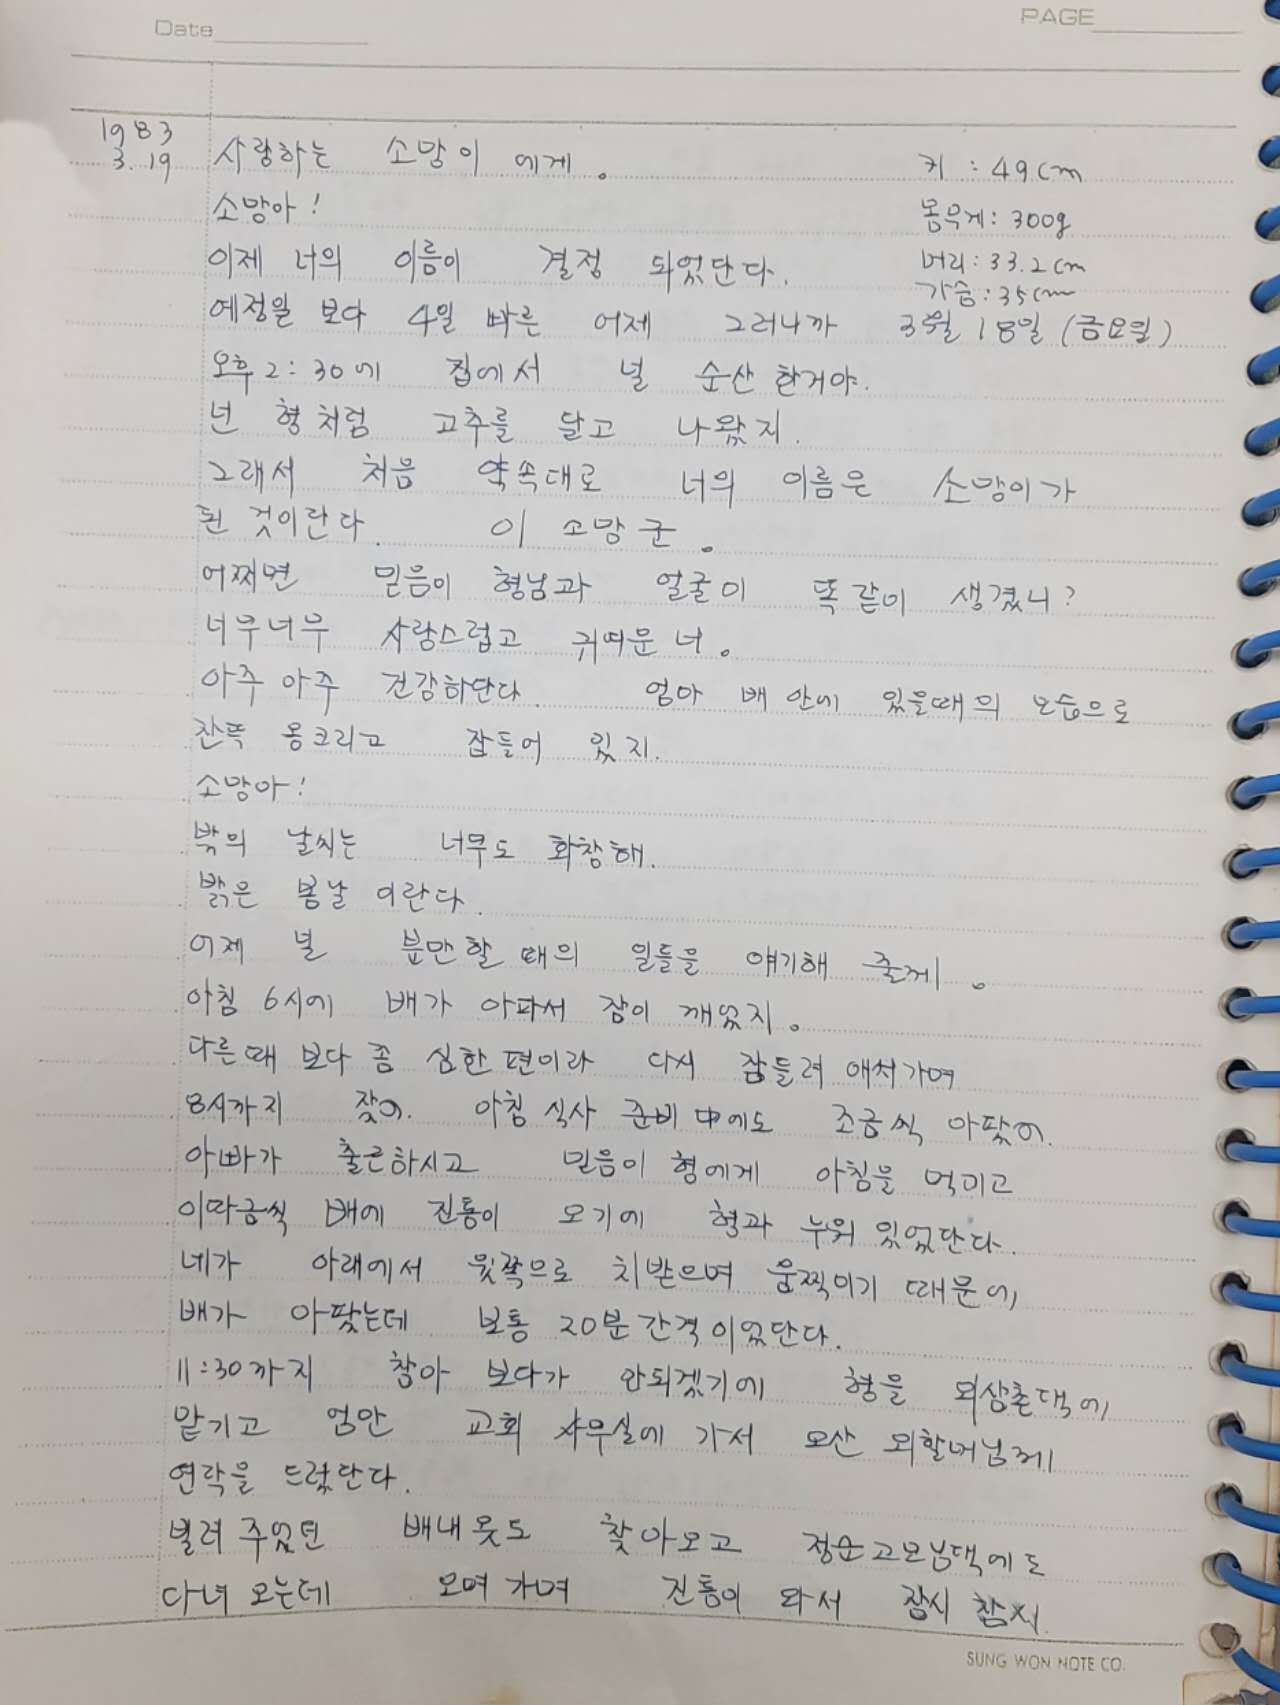 Date
PAGE
1983
3. 19
사랑하는 소망이에게.
키 : 49cm
소망아!
몸무게: 300g
이제 너의 이름이 결정 되었단다.
머리: 33.2cm
가슴: 35cm
예정일 보다 4일 빠른 어제 그러니까 3월 18일 (금요일)
오후 2:30에 집에서 널 순산 한거야.
넌 형처럼 고추를 달고 나왔지.
그래서 처음 약속대로 너의 이름은 소망이가
된 것이란다. 이 소망 군.
어쩌면 믿음이 형님과 얼굴이 똑같이 생겼니?
너무너무 사랑스럽고 귀여운 너.
아주 아주 건강하단다. 엄마 배 안에 있을때의 모습으로
잔뜩 웅크리고 잠들어 있지.
소망아!
밖의 날씨는 너무도 화창해.
밝은 봄날 이란다.
어제 널 분만할 때의 일들을 얘기해 줄께.
아침 6시에 배가 아파서 잠이 깨었지.
다른때 보다 좀 심한 편이라 다시 잠들려 애써가며
8시까지 잤어. 아침 식사 준비 中에도 조금씩 아팠어.
아빠가 출근하시고 믿음이 형에게 아침을 먹이고
이따금씩 배에 진통이 오기에 형과 누워 있었단다.
네가 아래에서 윗쪽으로 치받으며 움찍이기 때문에
배가 아팠는데 보통 20분 간격이었단다.
11:30까지 참아 보다가 안되겠기에 형을 외삼촌댁에
맡기고 엄만 교회 사무실에 가서 오산 외할머님께
연락을 드렸단다.
빌려 주었던 배내옷도 찾아오고 정순고모님댁에도
다녀 오는데 오며 가며 진통이 와서 잠시 참지.
SUNG WON NOTE CO.